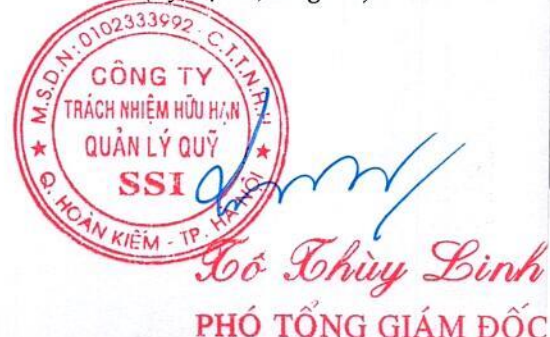 M.S.D.N: 0102333992 - C.T.T.N.H.H
CÔNG TY
TRÁCH NHIỆM HỮU HẠN
QUẢN LÝ QUỸ
SSI
Q. HOÀN KIẾM - TP. HÀ NỘI
Tô Thùy Linh
PHÓ TỔNG GIÁM ĐỐC